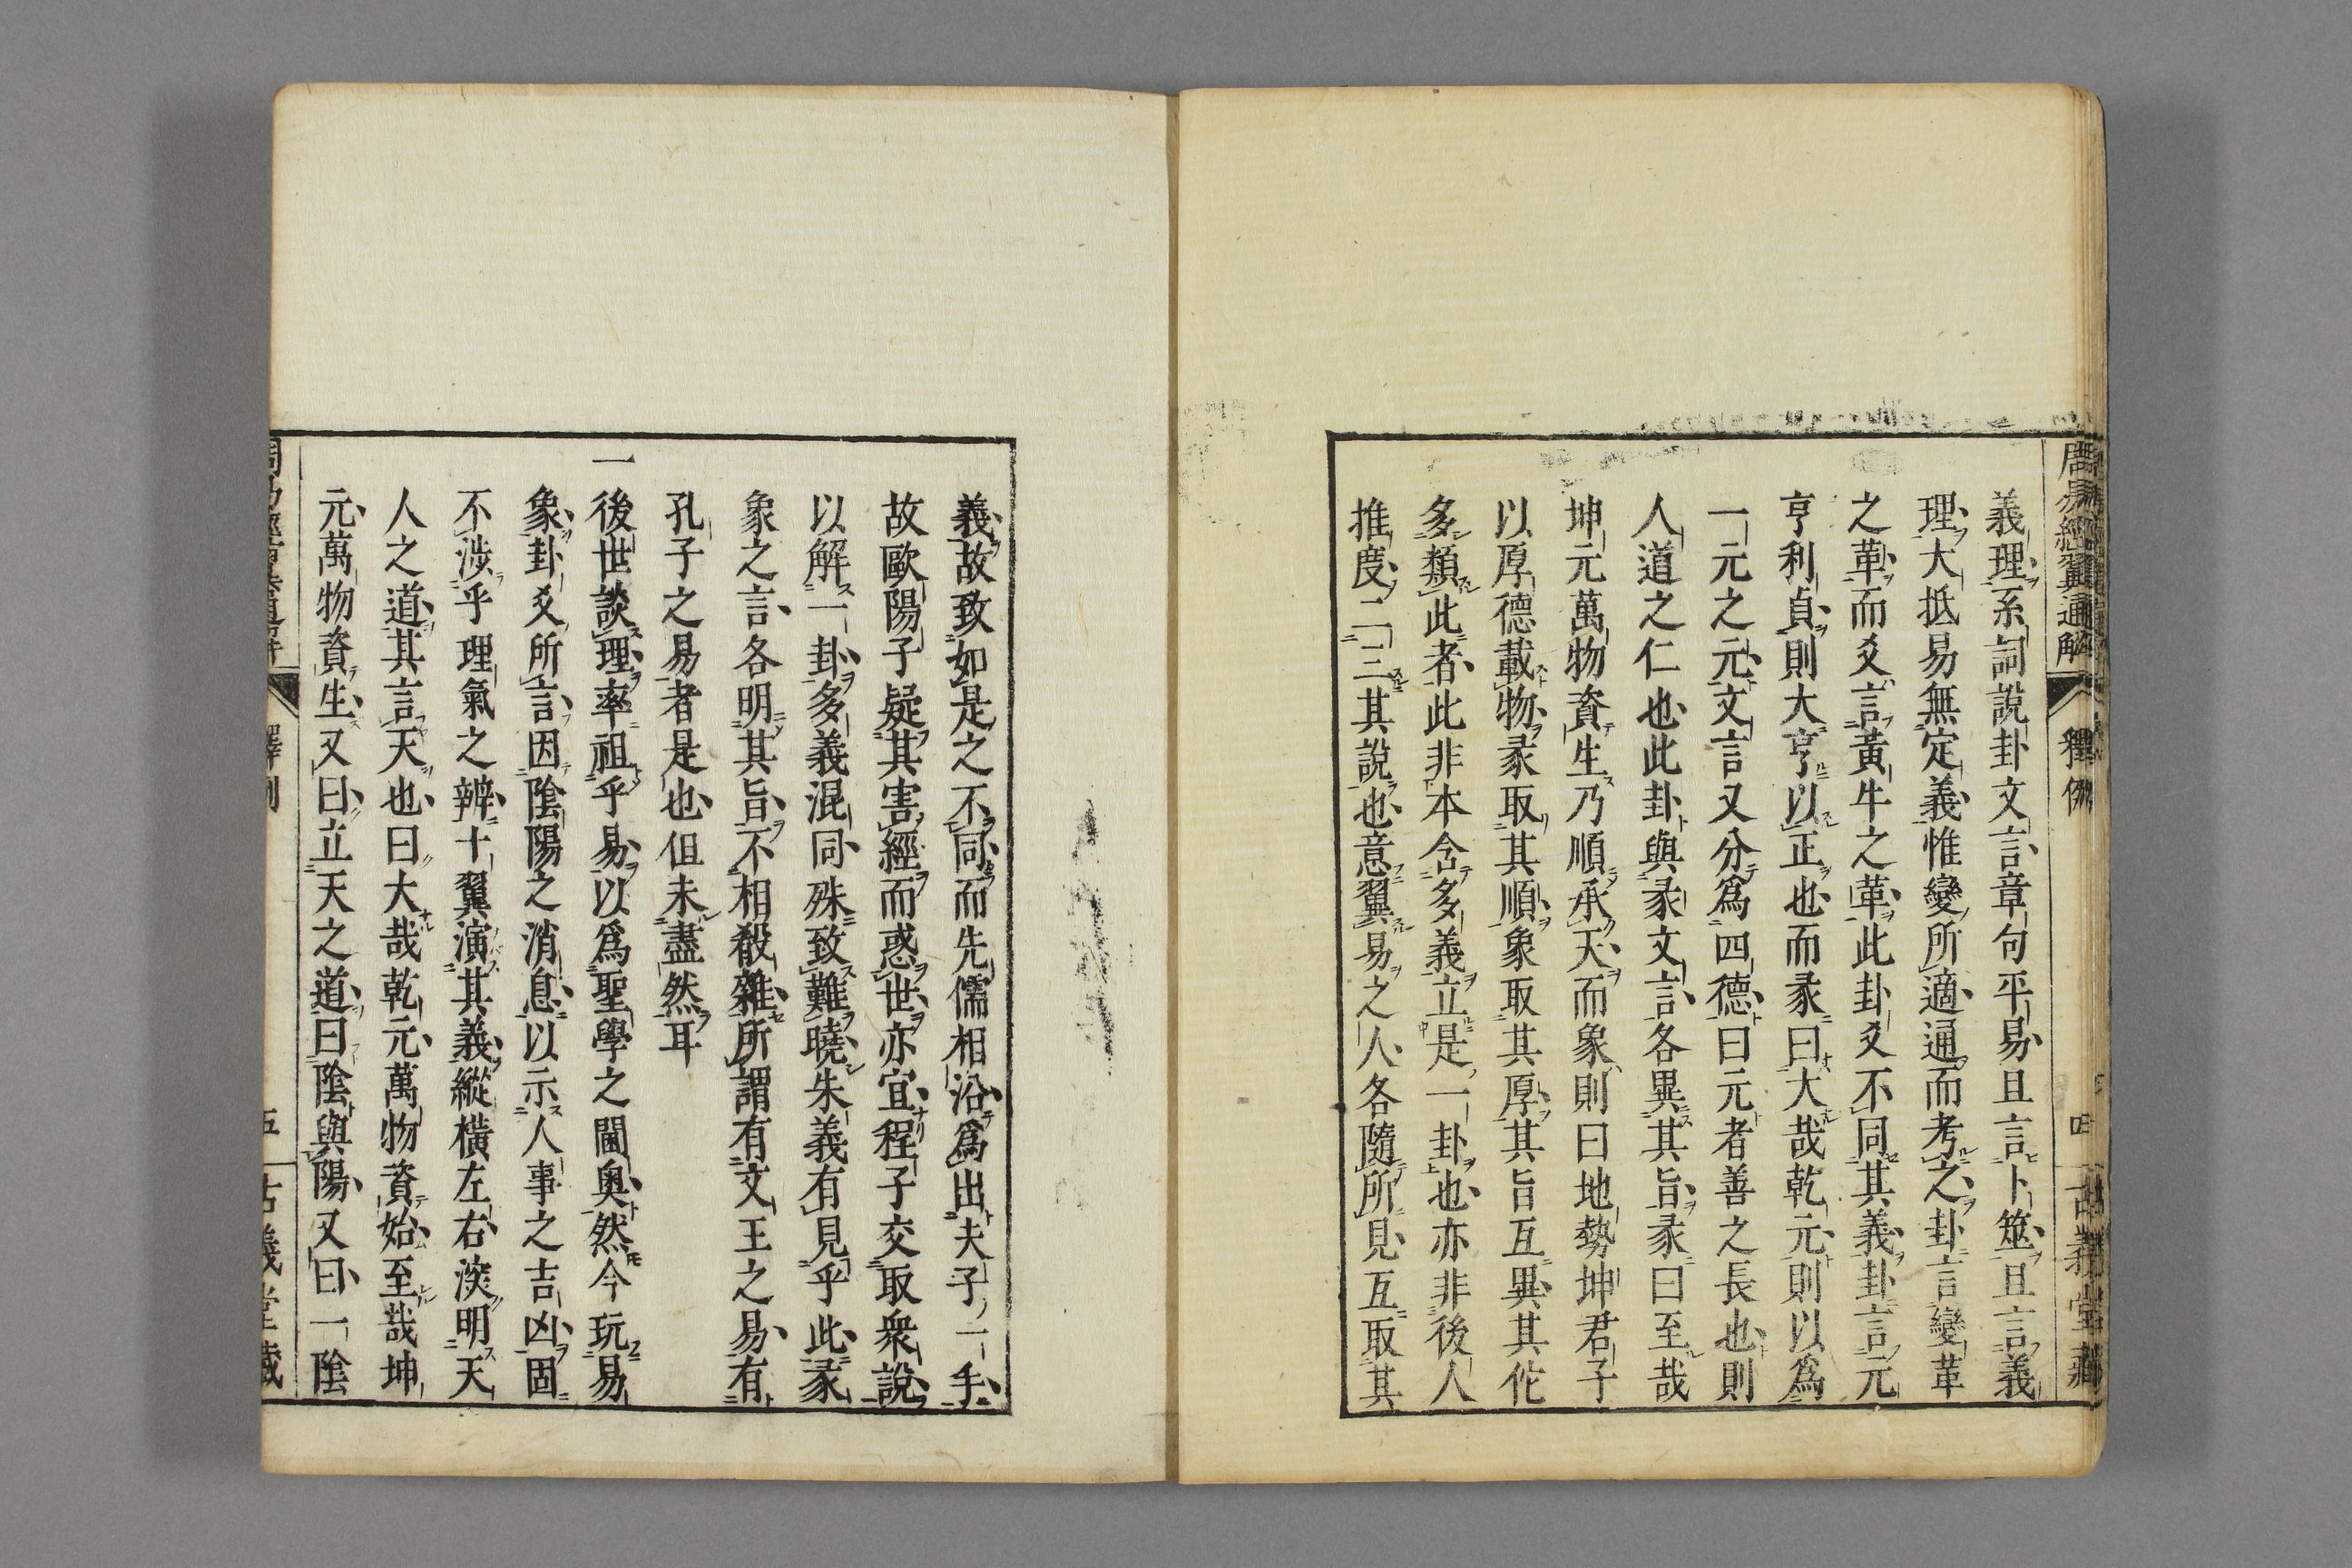 周易經翼通解 釋例 四 古義堂藏
義理系詞說卦文言章句平易且言卜筮且言義
理大抵易無定義惟變所適通而考之卦言變革
之革而爻言黃牛之革此卦爻不同其義卦言元
亨利貞則大亨以正也而彖曰大哉乾元則以爲
一元之元文言又分爲四德曰元者善之長也則
人道之仁也此卦與彖文言各異其旨彖曰至哉
坤元萬物資生乃順承天而象則曰地勢坤君子
以厚德載物彖取其順象取其厚其旨互異其佗
多類此者此非本含多義立是一卦也亦非後人
推度二三其說也意翼易之人各隨所見互取其
義故致如是之不同而先儒相沿爲出夫子一手
故歐陽子疑其害經而惑世亦宜程子交取衆說
以解一卦多義混同殊致難曉朱義有見乎此彖
象之言各明其旨不相殽雜所謂有文王之易有
孔子之易者是也但未盡然耳
一後世談理率祖乎易以爲聖學之閫奧然今玩易
象卦爻所言因陰陽之消息以示人事之吉凶固
不涉乎理氣之辨十翼演其義縱橫左右深明天
人之道其言天也曰大哉乾元萬物資始至哉坤
元萬物資生又曰立天之道曰陰與陽又曰一陰
釋例 五 古義堂藏